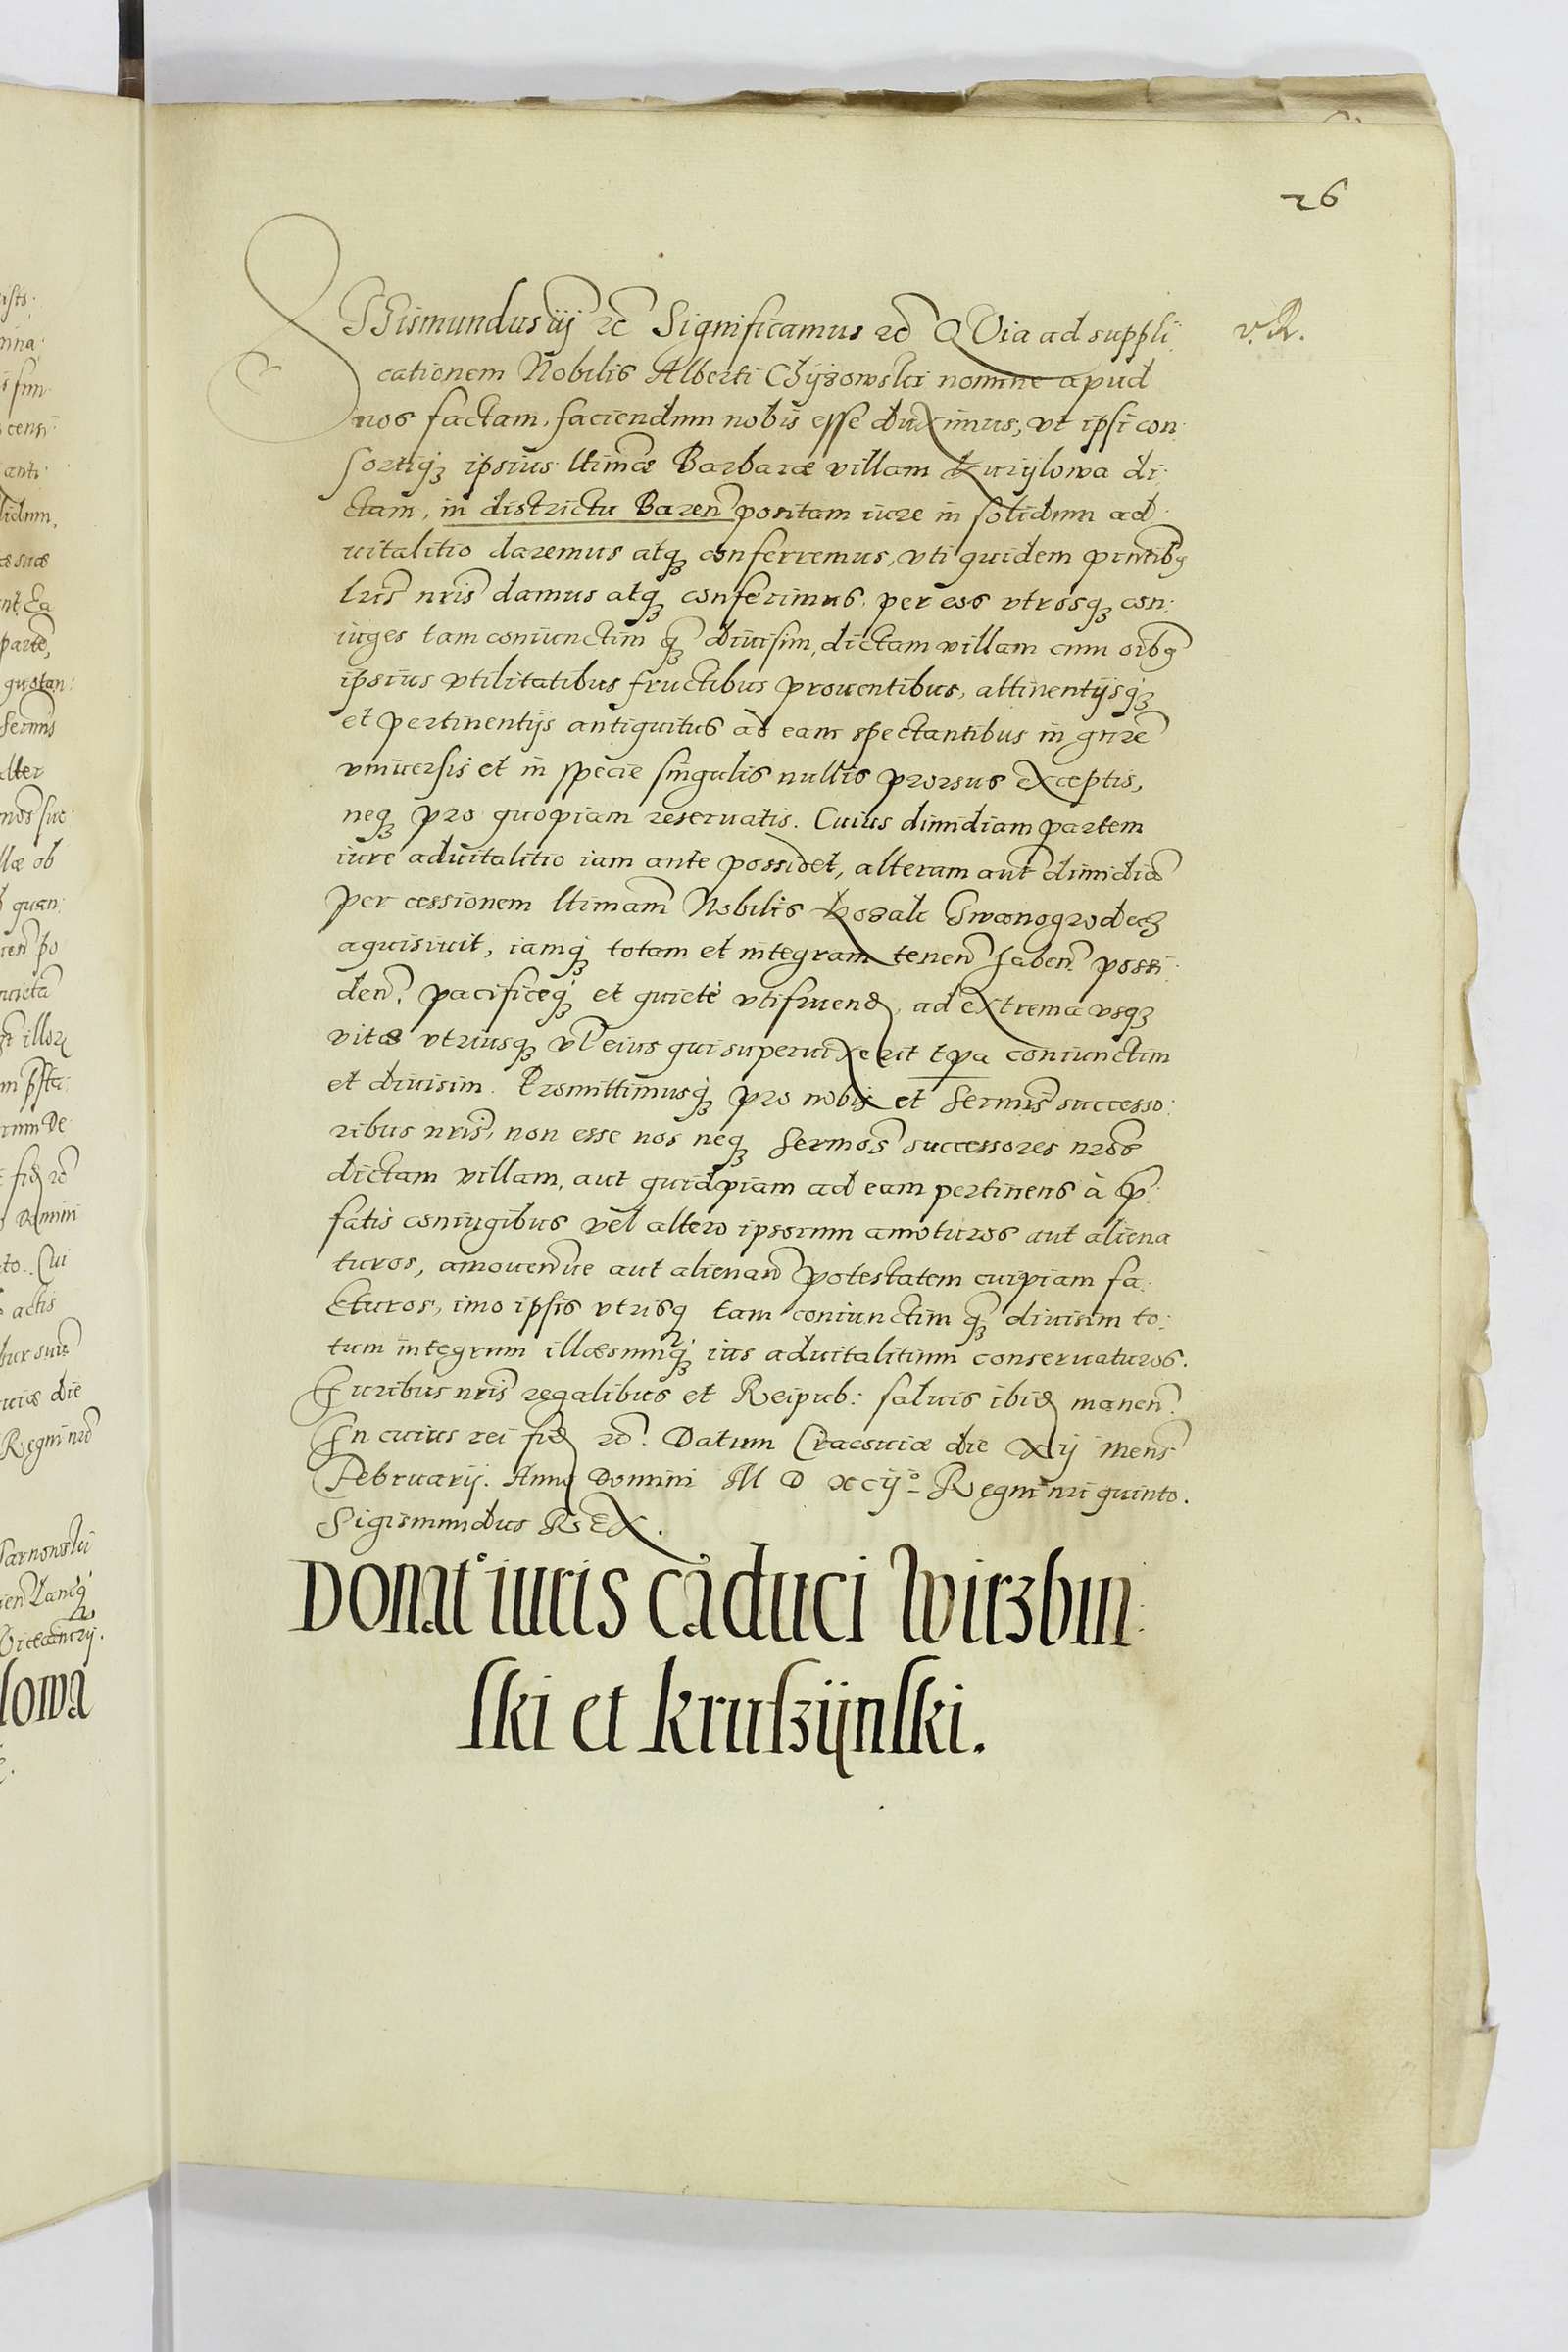 26
SIGismundus iij etc Significamus etc QVia ad suppli
v. R.
cationem Nobilis Alberti Chijzowski nomine apud
nos factam, faciendum nobis esse duximus, vt ipsi con:
sortiq3 ipsius ltimae Barbarae villam Kurijlowa di:
ctam, in districtu Baren positam iure in solidum ad:
uitalitio daremus atq3 conferremus, vti quidem pntibq
lris nris damus atq3 conferimus. per eos vtrosq3 con:
iuges tam coniunctim q3 diuisim, dictam villam cum oibq
ipsius vtilitatibus fructibus prouentibus, attinentijsq3
et pertinentijs antiquitus ad eam spectantibus in gnre
vniuersis et in specie singulis nullis prorsus exceptis,
neq3 pro quopiam reseruatis. Cuius dimidiam partem
iure aduitalitio iam ante possidet, alteram aut dimidia
per cessionem ltimam Nobilis Kozak
aquisiuit, iamq3 totam et integram tenen haben possi:
den. pacificeq3 et quietè vtifruend, ad extrema vsq3
vitae vtriusq3 vl eius qui superuixerit tpa coniunctim
et diuisim. Promittimusq3 pro nobis et sermis successo:
ribus nris, non esse nos neq3 sermos successores nros
dictam villam, aut quidpiam ad eam pertinens à p:
fatis coniugibus vel altero ipsorum amoturos aut aliena
turos, amouendue aut alienand potestatem cuipiam fa:
cturos, imo ipsis vtrisq3 tam coniunctim q3 diuisim to:
tum integrum illaesumq3 ius aduitalitium conseruaturos.
Iuribus nris regalibus et Reipub: saluis ibid manen.
In cuius rei fid etc. Datum Cracouiae die xij mens
Februarij. Anno Domini M D xcij° Regni nri quinto.
Sigismundus REX.
Donat° iuris caduci Wirzbin:
ski et Kruszijnski.